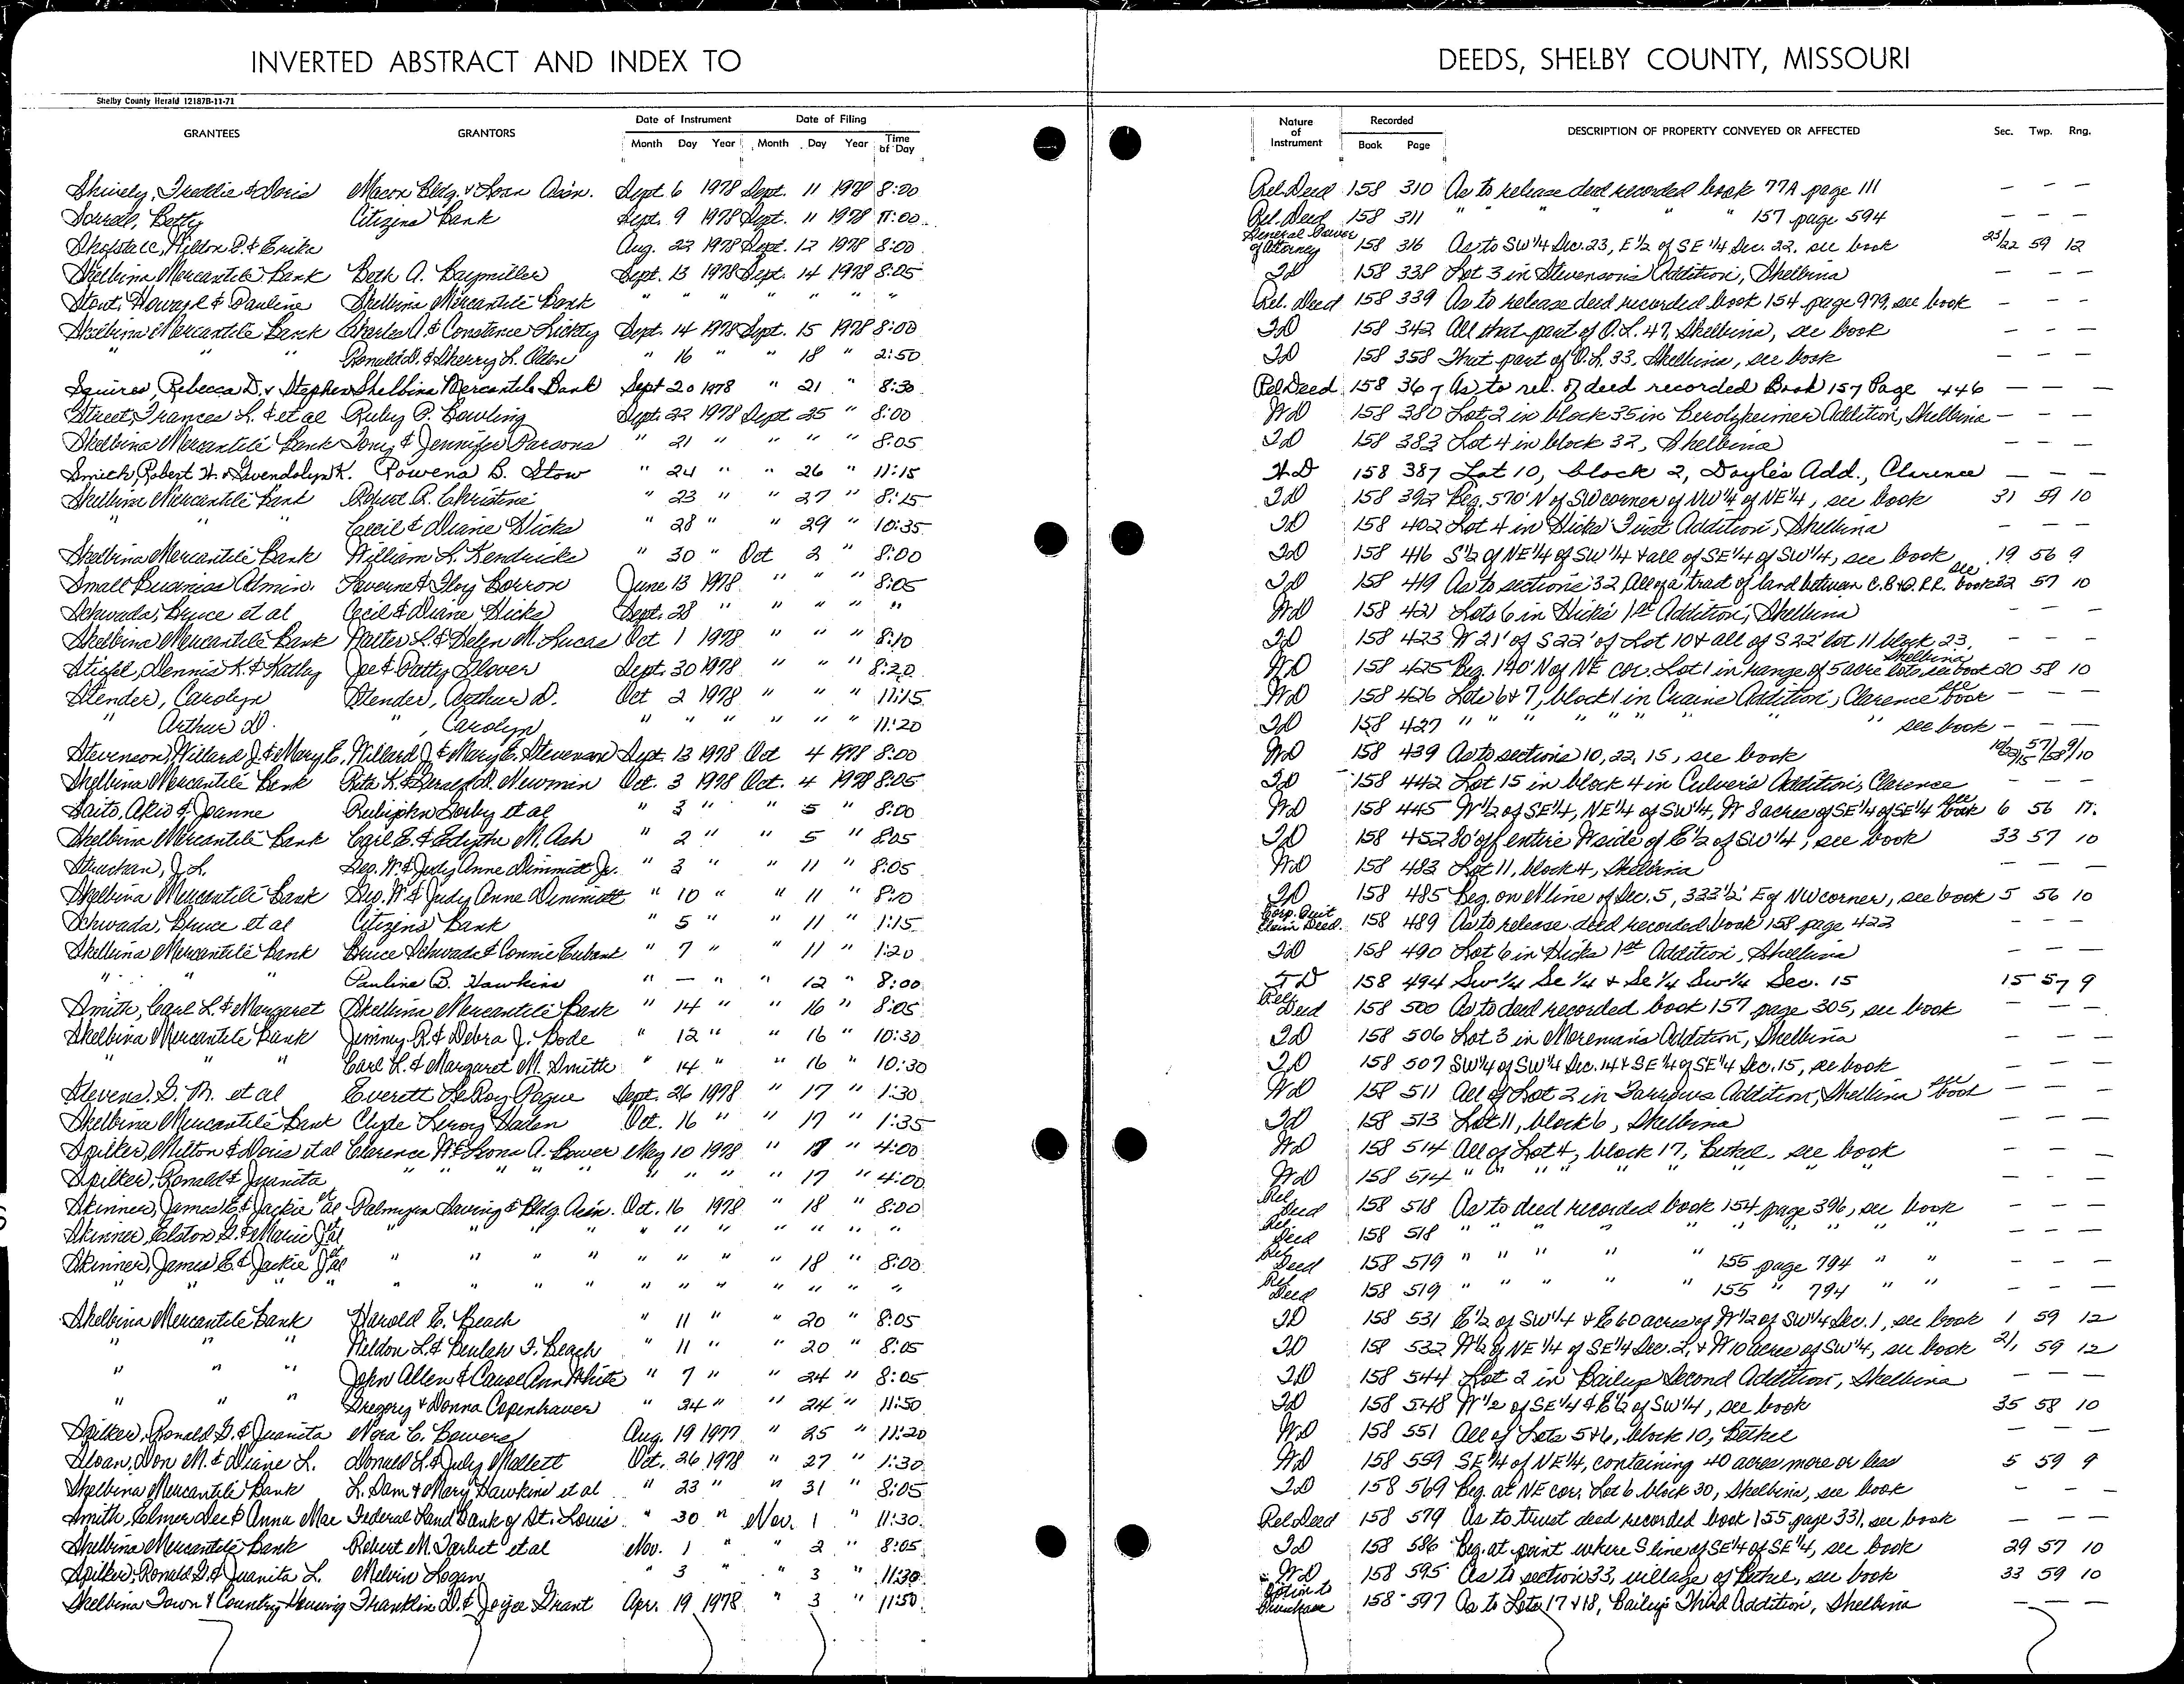 INVERTED ABSTRACT AND INDEX TO DEEDS, SHELBY COUNTY, MISSOURI
Shelby County Herald 12187B-11-71
GRANTEES GRANTORS Date of Instrument Date of Filing Nature of Instrument Recorded DESCRIPTION OF PROPERTY CONVEYED OR AFFECTED Sec. Twp. Rng.
Month Day Year Month Day Year Time of Day Book Page
Shively, Freddie & Doris Macon Bldg. & Loan Assn. Sept. 6 1978 Sept. 11 1978 8:00 Rel Deed 158 310 As to release deed recorded book 77A page 111 — — —
Sorrell, Betty Citizens Bank Sept. 9 1978 Sept. 11 1978 11:00 Rel. Deed 158 311 " " " " " 157 page 594 — — —
Aug. 22 1978 Sept. 12 1978 8:00 General Power of Attorney 158 316 As to SW¼ Sec. 23, E½ of SE¼ Sec. 22, see book 23/22 59 12
Shelbina Mercantile Bank Beth A. Baymiller Sept. 13 1978 Sept. 14 1978 8:05 TD 158 338 Lot 3 in Stevenson's Addition, Shelbina — — —
Stout, Howard & Pauline Shelbina Mercantile Bank " " " " " " " Rel. Deed 158 339 As to release deed recorded book 154 page 979, see book — — —
Shelbina Mercantile Bank Charles A. & Constance Sept. 14 1978 Sept. 15 1978 8:00 TD 158 342 All that part of O.L. 47, Shelbina, see book — — —
" " " Ronald D. & Sherry L. Oden " 16 " " 18 " 2:50 TD 158 358 That part of O.L. 33, Shelbina, see book — — —
Squires, Rebecca D. & Stephen Shelbina Mercantile Bank Sept 20 1978 " 21 " 8:30 Rel Deed 158 367 As to rel. of deed recorded Book 157 Page 446 — — —
Street, Frances L. & et al Ruby P. Bowling Sept. 22 1978 Sept 25 " 8:00 WD 158 380 Lot 2 in block 35 in Berolzheimer Addition, Shelbina — — —
Shelbina Mercantile Bank Tony & Jennifer Parsons " 21 " " " " 8:05 TD 158 383 Lot 4 in block 32, Shelbina — — —
Smick, Robert H. & Gwendolyn K. Rowena B. Stow " 24 " " 26 " 11:15 WD 158 387 Lot 10, block 2, Doyle's Add., Clarence — — —
Shelbina Mercantile Bank Robert R. Christine " 23 " " 27 " 8:15 TD 158 392 Beg. 570' N of SW corner of NW¼ of NE¼, see book 31 59 10
" " " Cecil & Diane Hicks " 28 " " 29 " 10:35 TD 158 402 Lot 4 in Hicks' First Addition, Shelbina — — —
Shelbina Mercantile Bank William L. Kendricks " 30 " Oct 2 " 8:00 TD 158 416 S½ of NE¼ of SW¼ & all of SE¼ of SW¼, see book 19 56 9
Small Business Admin. Laverne & Floy Borron June 13 1978 " " " 8:05 TD 158 419 As to sections 32 All of a tract of land between C.B.&Q. R.R. see book 32 57 10
Schwada, Bruce et al Cecil & Diane Hicks Sept. 28 " " " " " WD 158 421 Lots 6 in Hicks 1st Addition, Shelbina — — —
Shelbina Mercantile Bank Walter L. & Helen M. Lucas Oct 1 1978 " " " 8:10 TD 158 423 W 21' of S 22' of Lot 10 & all of S 22' lot 11 block 23, Shelbina
Stiefel, Dennis K. & Kathy Joe & Patty Glover Sept. 30 1978 " " " 8:20 WD 158 425 Beg. 140' N of NE cor. Lot 1 in range of 5 acre lots, see book 20 58 10
Stender, Carolyn Stender, Arthur D. Oct 2 1978 " " " 11:15 WD 158 426 Lots 6 & 7, block 1 in Crains Addition, Clarence see book — — —
" Arthur D. " , Carolyn " " " " " " 11:20 TD 158 427 " " " " " " " " see book — — —
Stevenson, Willard J. & Mary E. Willard J. & Mary E. Stevenson Sept. 13 1978 Oct 4 1978 8:00 WD 158 439 As to sections 10, 22, 15, see book 10/22/15 57/58 9/10
Shelbina Mercantile Bank Rita K. & Gerald D. Newmin Oct. 3 1978 Oct. 4 1978 8:05 TD 158 442 Lot 15 in block 4 in Culver's Addition, Clarence
Saito, Akio & Joanne et al " 3 " " 5 " 8:00 WD 158 445 W½ of SE¼, NE¼ of SW¼, W 8 acres of SE¼ of SE¼ see book 6 56 11
Shelbina Mercantile Bank Carl E. & Edythe M. Ash " 2 " " 5 " 8:05 TD 158 452 80' off entire W side of E½ of SW¼, see book 33 57 10
J. L. Geo. W. & Judy Anne Dimmitt Jr. " 3 " 11 " 8:05 WD 158 483 Lot 11, block 4, Shelbina — — —
Shelbina Mercantile Bank Geo. W. & Judy Anne Dimmitt " 10 " " 11 " 8:10 TD 158 485 Beg. on N line of Sec. 5, 333½' E of NW corner, see book 5 56 10
Schwada, Bruce et al Citizens Bank " 5 " " 11 " 1:15 Corp. Quit Claim Deed. 158 489 As to release deed recorded book 158 page 422 — — —
Shelbina Mercantile Bank Bruce Schwada & Connie Eubank " 7 " 11 " 1:20 TD 158 490 Lot 6 in Hicks 1st Addition, Shelbina — — —
" " " Pauline B. Hawkins " — " " 12 " 8:00 TD 158 494 SW¼ SE¼ & SE¼ SW¼ Sec. 15 15 57 9
Smith, Carl L. & Margaret Shelbina Mercantile Bank " 14 " " 16 " 8:05 Rel. Deed 158 500 As to deed recorded book 157 page 305, see book — —
Shelbina Mercantile Bank Jimmy R. & Debra J. Bode " 12 " " 16 " 10:30 TD 158 506 Lot 3 in Moreman's Addition, Shelbina — — —
" " " Carl L. & Margaret M. Smith " 14 " " 16 " 10:30 TD 158 507 SW¼ of SW¼ Sec. 14 & SE¼ of SE¼ Sec. 15, see book — — —
Stevens, G. M. et al Everett LeRoy Pague Sept. 26 1978 " 17 " 1:30 WD 158 511 All of Lot 2 in Addition, Shelbina see book — — —
Shelbina Mercantile Bank Clyde Leroy Haden Oct. 16 " " 17 " 1:35 TD 158 513 Lot 11, block 6, Shelbina — — —
Spilker, Milton & Doris et al Clarence W. & Leona A. Bower May 10 1978 " 17 " 4:00 WD 158 514 All of Lot 4, block 17, Bethel, see book — — —
Spilker, Ronald & Juanita " " " " " " " " 17 " 4:00 WD 158 514 " " " " " " " — — —
Skinner, James E. & Jackie et al Palmyra Saving & Bldg Assn. Oct. 16 1978 " 18 " 8:00 Rel. Deed 158 518 As to deed recorded book 154 page 396, see book — — —
Skinner, Elston G. & Marie J. et al " " " " " " " " " " " Rel. Deed 158 518 " " " " " " " " — — —
Skinner, James E. & Jackie J. et al " " " " " " " " 18 " 8:00 Rel Deed 158 519 " " " " " 155 page 794 " " — — —
" " " " " " " " " " " " " " Rel Deed 158 519 " " " " " 155 " 794 " " — — —
Shelbina Mercantile Bank Harold E. Beach " 11 " " 20 " 8:05 TD 158 531 E½ of SW¼ & E 60 acres of W½ of SW¼ Sec. 1, see book 1 59 12
" " " Weldon L. & Beulah F. Beach " 11 " " 20 " 8:05 TD 158 532 W½ of NE¼ of SE¼ Sec. 2, & W 10 acres of SW¼, see book 2/1 59 12
" " " John Allen & Carol Ann White " 7 " " 24 " 8:05 TD 158 544 Lot 2 in Bailey's Second Addition, Shelbina — — —
" " " Gregory & Donna Copenhaver " 24 " " 24 " 11:50 TD 158 548 W½ of SE¼ & E½ of SW¼, see book 35 58 10
Spilker, Ronald G. & Juanita Nora C. Bowers Aug. 19 1977 " 25 " 11:20 WD 158 551 All of Lots 5 & 6, block 10, Bethel — — —
Sloan, Don M. & Diane L. Donald L. & July Mallett Oct. 26 1978 " 27 " 1:30 WD 158 559 SE¼ of NE¼, containing 40 acres more or less 5 59 9
Shelbina Mercantile Bank L. Dam & Mary Hawkins et al " 23 " " 31 " 8:05 TD 158 569 Beg. at NE cor. Lot 6 block 30, Shelbina, see book — — —
Smith, Elmer Dee & Anna Mae Federal Land Bank of St. Louis " 30 " Nov. 1 " 11:30 Rel Deed 158 579 As to trust deed recorded book 155 page 331, see book — — —
Shelbina Mercantile Bank Robert M. Tarbet et al Nov. 1 " " 2 " 8:05 TD 158 586 Beg. at point where S line of SE¼ of SE¼, see book 29 57 10
Spilker, Ronald G. & Juanita L. Melvin Logan " 3 " " 3 " 11:30 WD 158 595 As to section 33, village of Bethel, see book 33 59 10
Shelbina Town & Country Housing Franklin D. & Joyce Grant Apr. 19 1978 " 3 " 11:50 Option to Purchase 158 597 As to Lots 17 & 18, Bailey's Third Addition, Shelbina — — —